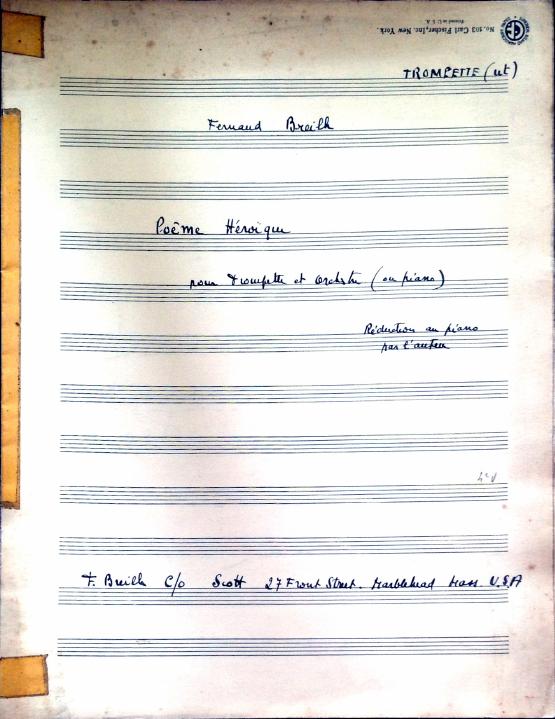 No. 103 Carl Fischer, Inc. New York.
Printed in U.S.A.
TROMPETTE (ut)
Fernand Breilh
Poème Héroïque
pour trompette et orchestre (ou piano)
Réduction au piano
par l'auteur
F. Breilh c/o Scott 27 Front Street. Marblehead Mass. U.S.A